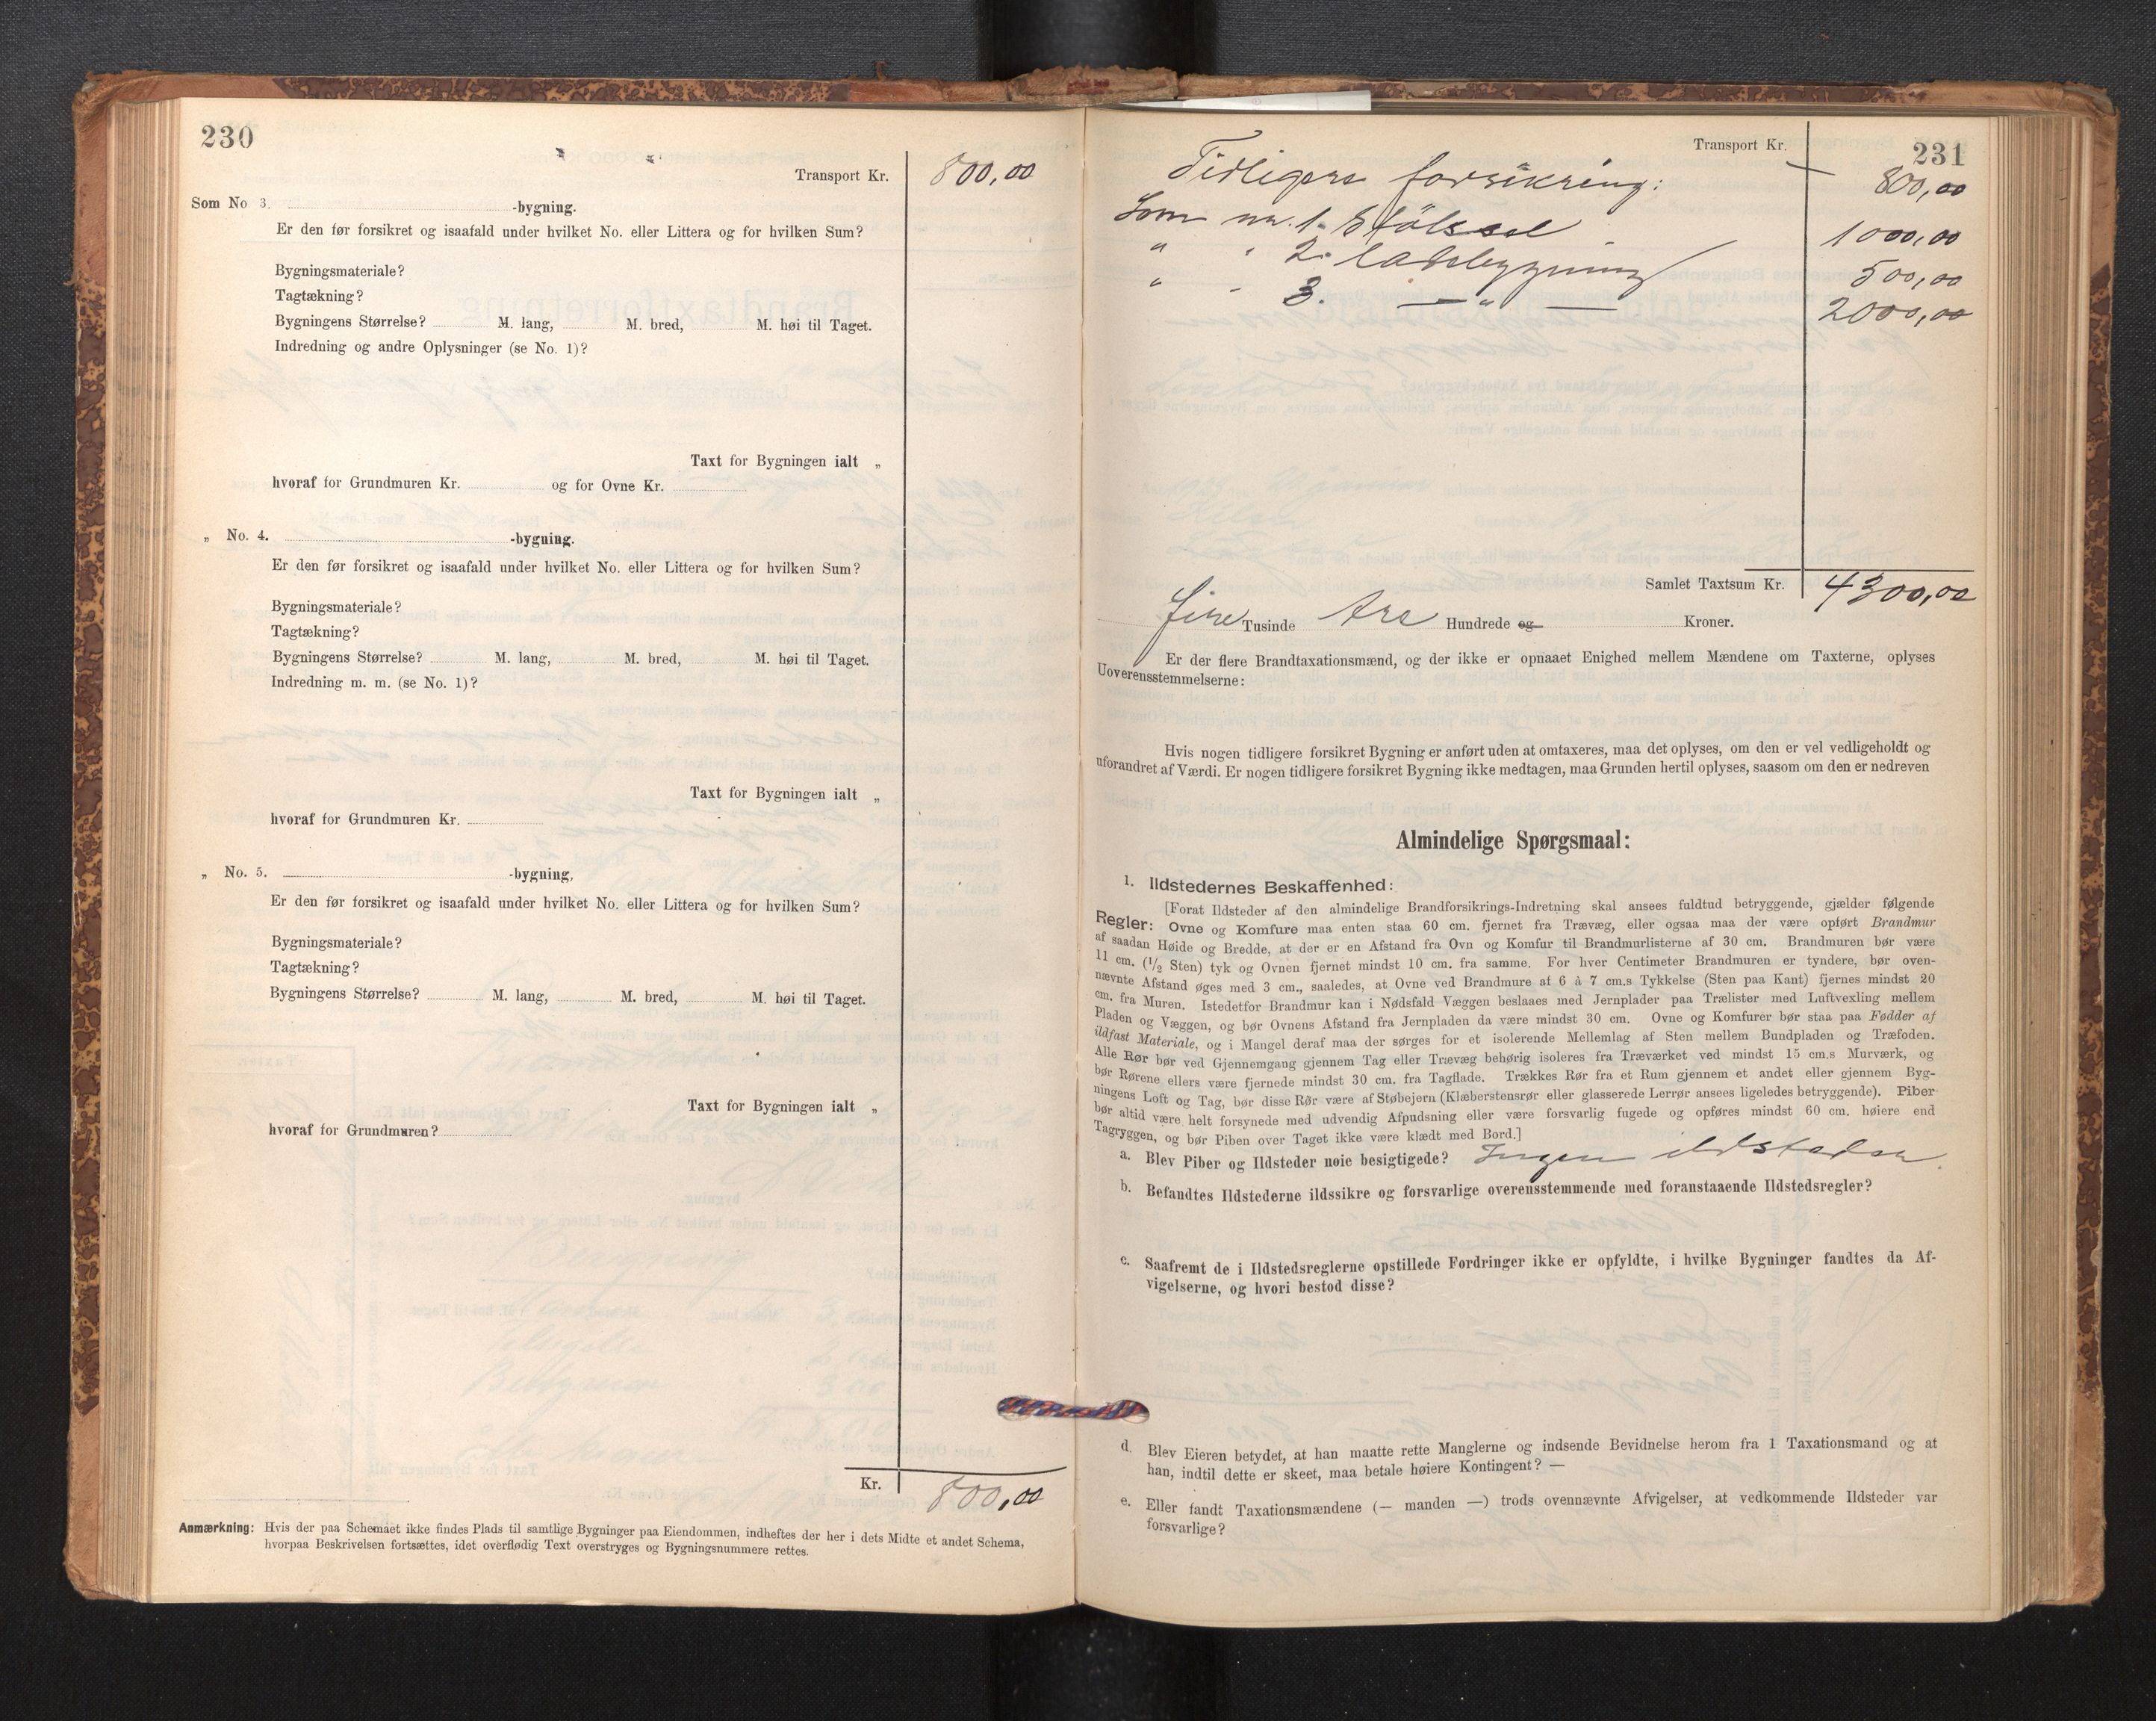 230
Transport Kr. 800,00
Som No 3. -bygning.
Er den før forsikret og isaafald under hvilket No. eller Littera og for hvilken Sum?
Bygningsmateriale?
Tagtækning?
Bygningens Størrelse? M. lang, M. bred, M. høi til Taget.
Indredning og andre Oplysninger (se No. 1)?
Taxt for Bygningen ialt „
hvoraf for Grundmuren Kr. og for Ovne Kr.
„ No. 4. -bygning.
Er den før forsikret og isaafald under hvilket No. eller Littera og for hvilken Sum?
Bygningsmateriale?
Tagtækning?
Bygningens Størrelse? M. lang, M. bred, M. høi til Taget.
Indredning m. m. (se No. 1)?
Taxt for Bygningen ialt „
hvoraf for Grundmuren Kr.
„ No. 5. -bygning,
Er den før forsikret og isaafald under hvilket No. eller Littera og for hvilken Sum?
Bygningsmateriale?
Tagtækning?
Bygningens Størrelse? M. lang, M. bred, M. høi til Taget.
Taxt for Bygningen ialt „
hvoraf for Grundmuren?
Kr. 800,00
Anmærkning: Hvis der paa Schemaet ikke findes Plads til samtlige Bygninger paa Eiendommen, indheftes der her i dets Midte et andet Schema,
hvorpaa Beskrivelsen fortsættes, idet overflødig Text overstryges og Bygningsnummere rettes.
231
Transport Kr.
Tidligere forsikring: 800,00
Som nr. 1. 1000,00
" " 2. ladebygning 500,00
" " 3. — " — 2000,00
Samlet Taxtsum Kr. 4300,00
fire Tusinde tre Hundrede og Kroner.
Er der flere Brandtaxationsmænd, og der ikke er opnaaet Enighed mellem Mændene om Taxterne, oplyses
Uoverensstemmelserne:
Hvis nogen tidligere forsikret Bygning er anført uden at omtaxeres, maa det oplyses, om den er vel vedligeholdt og
uforandret af Værdi. Er nogen tidligere forsikret Bygning ikke medtagen, maa Grunden hertil oplyses, saasom om den er nedreven
Almindelige Spørgsmaal:
1. Ildstedernes Beskaffenhed:
[Forat Ildsteder af den almindelige Brandforsikrings-Indretning skal ansees fuldtud betryggende, gjælder følgende
Regler: Ovne og Komfure maa enten staa 60 cm. fjernet fra Trævæg, eller ogsaa maa der være opført Brandmur
af saadan Høide og Bredde, at der er en Afstand fra Ovn og Komfur til Brandmurlisterne af 30 cm. Brandmuren bør være
11 cm. (1/2 Sten) tyk og Ovnen fjernet mindst 10 cm. fra samme. For hver Centimeter Brandmuren er tyndere, bør oven-
nævnte Afstand øges med 3 cm., saaledes, at Ovne ved Brandmure af 6 à 7 cm.s Tykkelse (Sten paa Kant) fjernes mindst 20
cm. fra Muren. Istedetfor Brandmur kan i Nødsfald Væggen beslaaes med Jernplader paa Trælister med Luftvexling mellem
Pladen og Væggen, og bør Ovnens Afstand fra Jernpladen da være mindst 30 cm. Ovne og Komfurer bør staa paa Fødder af
ildfast Materiale, og i Mangel deraf maa der sørges for et isolerende Mellemlag af Sten mellem Bundpladen og Træfoden.
Alle Rør bør ved Gjennemgang gjennem Tag eller Trævæg behørig isoleres fra Træværket ved mindst 15 cm.s Murværk, og
bør Rørene ellers være fjernede mindst 30 cm. fra Tagflade. Trækkes Rør fra et Rum gjennem et andet eller gjennem Byg-
ningens Loft og Tag, bør disse Rør være af Støbejern (Klæberstensrør eller glasserede Lerrør ansees ligeledes betryggende). Piber
bør altid være helt forsynede med udvendig Afpudsning eller være forsvarlig fugede og opføres mindst 60 cm. høiere end
Tagryggen, og bør Piben over Taget ikke være klædt med Bord.]
a. Blev Piber og Ildsteder nøie besigtigede? Ingen ildsteder.
b. Befandtes Ildstederne ildssikre og forsvarlige overensstemmende med foranstaaende Ildstedsregler?
c. Saafremt de i Ildstedsreglerne opstillede Fordringer ikke er opfyldte, i hvilke Bygninger fandtes da Af-
vigelserne, og hvori bestod disse?
d. Blev Eieren betydet, at han maatte rette Manglerne og indsende Bevidnelse herom fra 1 Taxationsmand og at
han, indtil dette er skeet, maa betale høiere Kontingent? —
e. Eller fandt Taxationsmændene (— manden —) trods ovennævnte Afvigelser, at vedkommende Ildsteder var
forsvarlige?